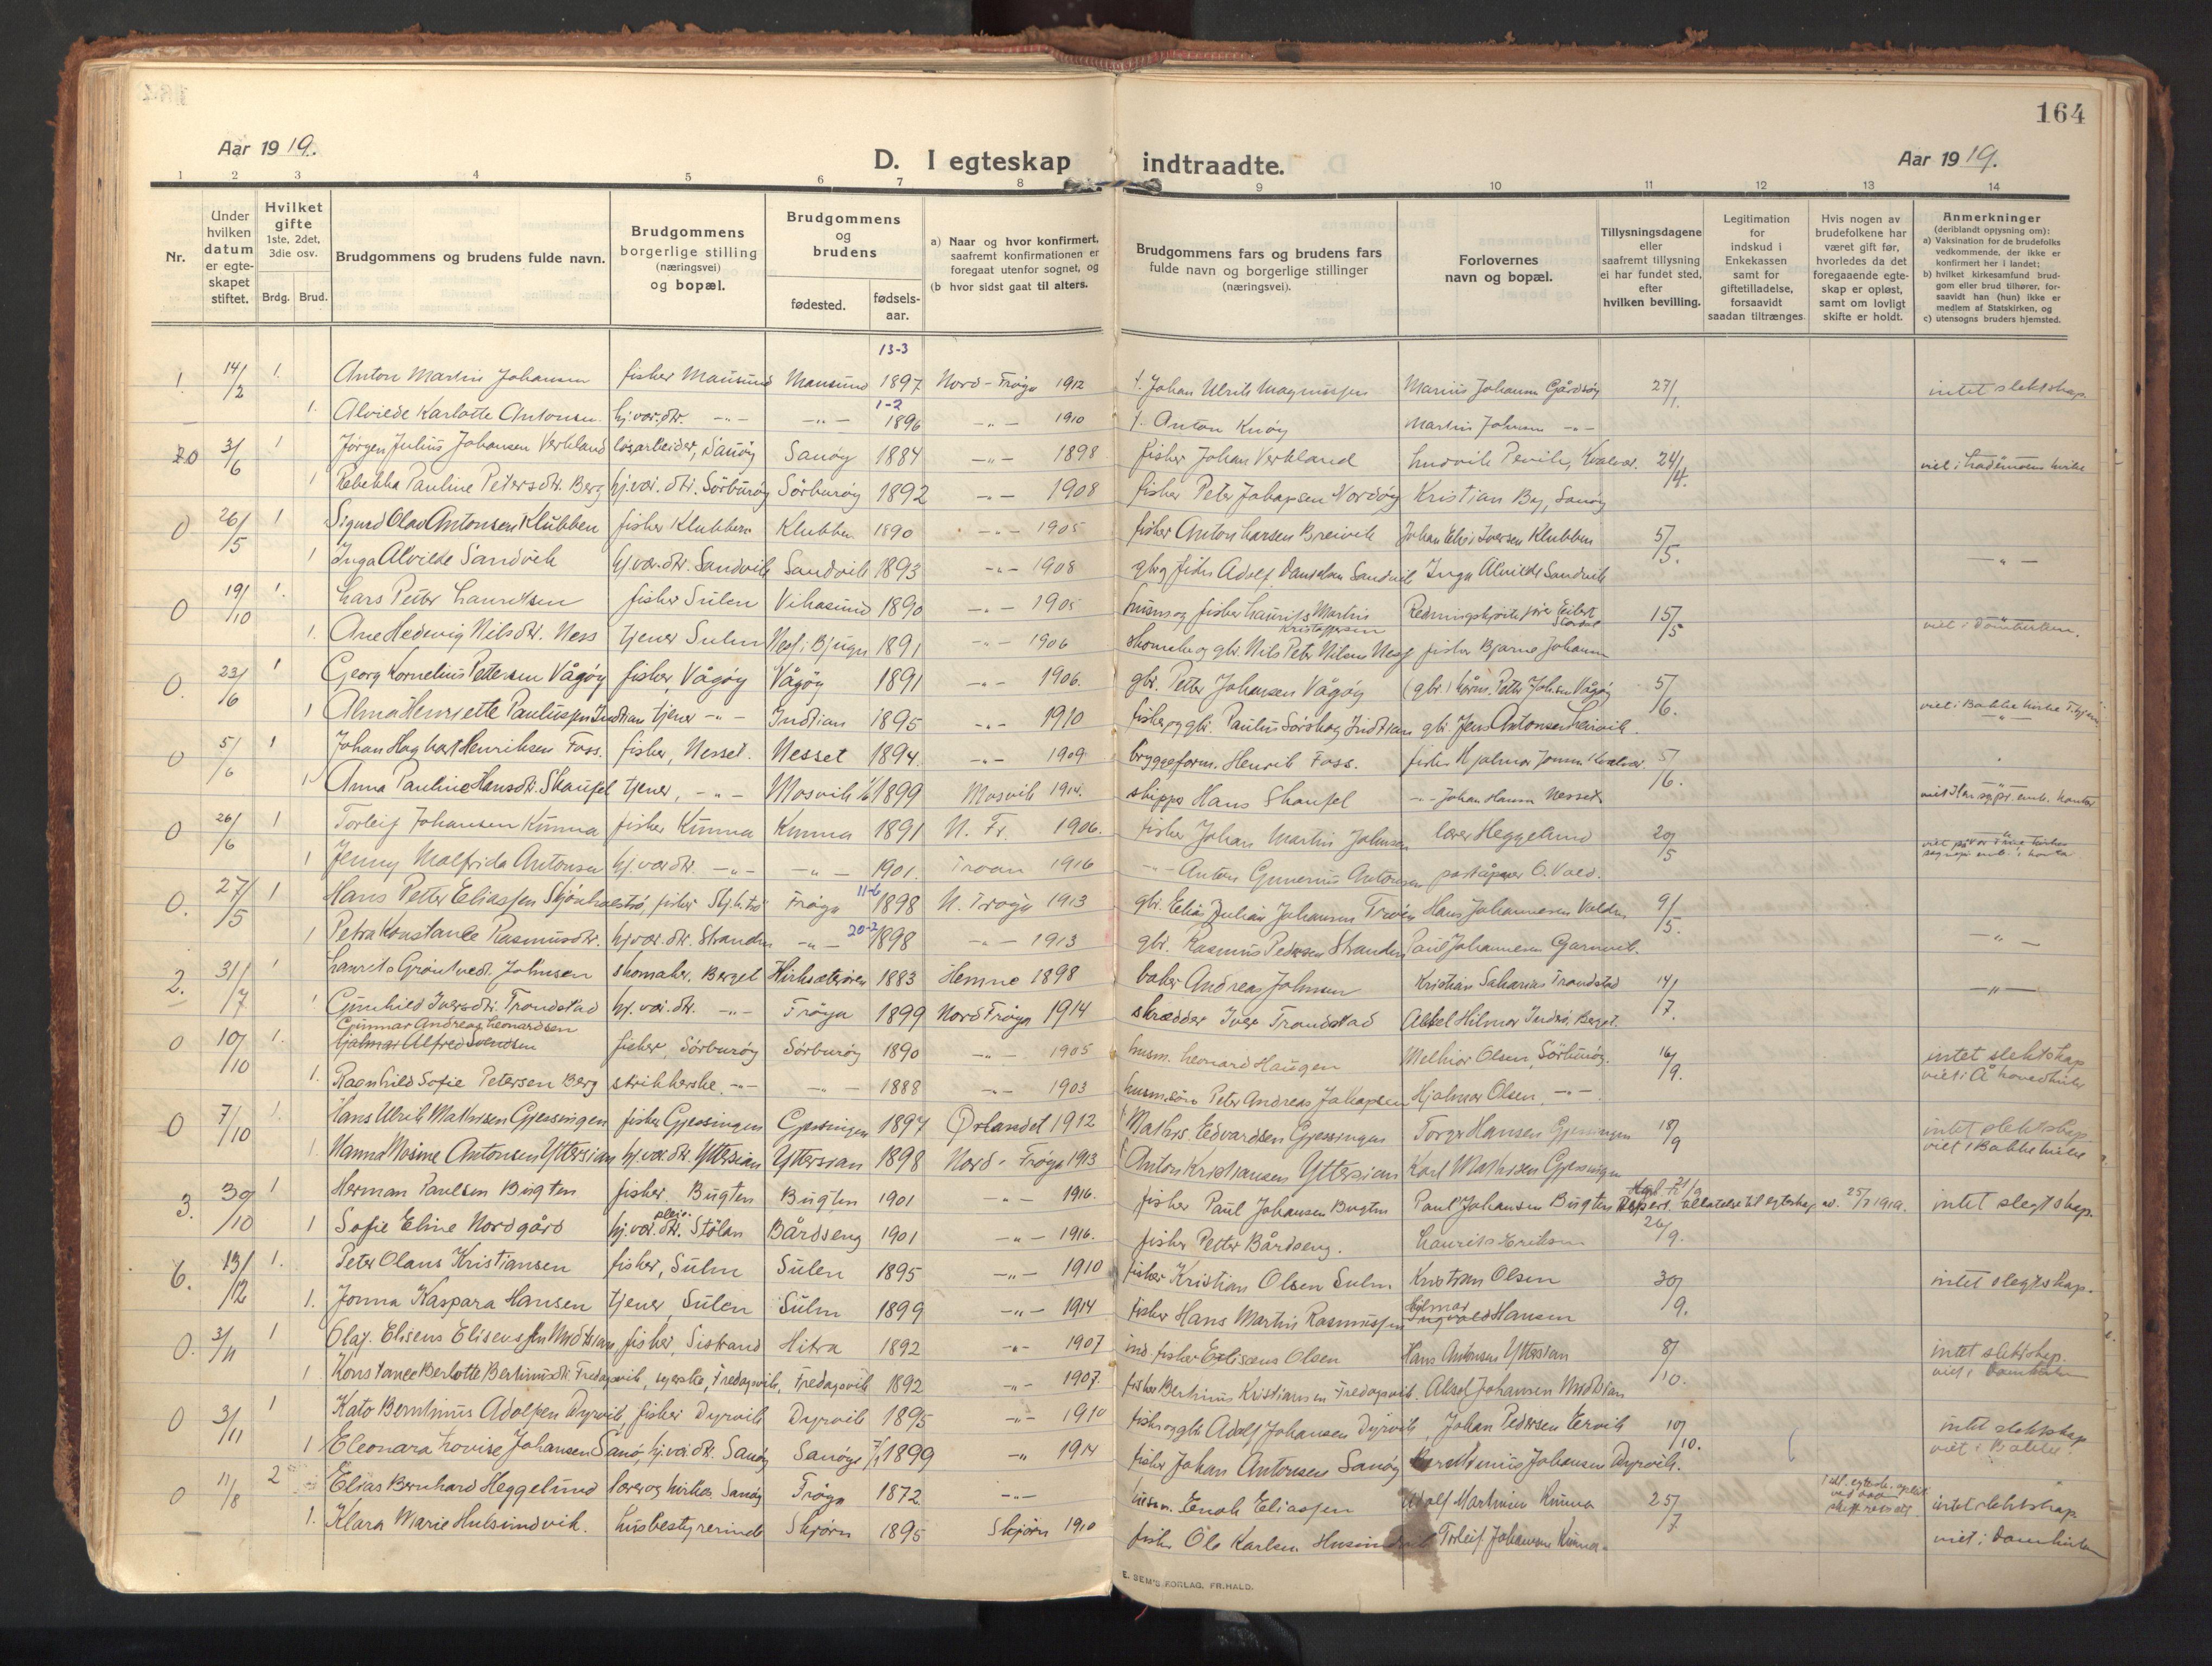 164
Aar 1919.
D. I egteskap indtraadte.
Aar 1919.
1 2 3 4 5 6 7 8 9 10 11 12 13 14
Nr.
Under hvilken datum er egteskapet stiftet.
Hvilket gifte 1ste, 2det, 3die osv.
Brdg. Brud.
Brudgommens og brudens fulde navn.
Brudgommens borgerlige stilling (næringsvei) og bopæl.
Brudgommens og brudens
fødested.
fødsels-aar.
a) Naar og hvor konfirmert, saafremt konfirmationen er foregaat utenfor sognet, og (b hvor sidst gaat til alters.
Brudgommens fars og brudens fars fulde navn og borgerlige stillinger (næringsvei).
Forlovernes navn og bopæl.
Tillysningsdagene eller saafremt tillysning ei har fundet sted, efter hvilken bevilling.
Legitimation for indskud i Enkekassen samt for giftetilladelse, forsaavidt saadan tiltrænges.
Hvis nogen av brudefolkene har været gift før, hvorledes da det foregaaende egteskap er opløst, samt om lovligt skifte er holdt.
Anmerkninger (deriblandt opjysning om): a) Vaksination for de brudefolks vedkommende, der ikke er konfirmert her i landet; b) hvilket kirkesamfund brudgom eller brud tilhører, forsaavidt han (hun) ikke er medlem af Statskirken, og c) utensogns bruders hjemsted.
13-3
1. 14/2 1. Anton Martin Johansen fisker Mausund Mausund 1897 Nord-Frøya 1912 †. Johan Ulrik Magnussen Marius Johansen Gårdsøy 27/1. intet slektskap.
1-2
1. Alvilde Karlotte Antonsen hj.var.dtr. -"- -"- 1896 -"- 1910 †. Anton Knøy Martin Johnsen -"-
20 3/6 1 Jørgen Julius Johansen Verkland løsarbeider, Sanøy Sanøy 1884 -"- 1898 fisker Johan Verkland Ludvik Pevik, Kvalvær. 24/4.
1 Rebekka Pauline Petersdtr. Berg hj.var.dtr. Sörburøy Sörburøy 1892 -"- 1908 fisker Peter Johansen Nordøy Kristian By, Sanøy
0 26/5 1 Sigurd Olav Antonsen Klubben fisker Klubben Klubben 1890 -"- 1905 fisker Anton Larsen Breivik Johan Iversen Klubben 5/5.
1 Inga Alvilde Sandvik hj.var.dtr. Sandvik Sandvik 1893 -"- 1908 gbr og fisker Adolf Danielsen Sandvik Inga Alvilde Sandvik -"-
0 19/10 1. Lars Petter Lauritsen fisker Sulen Vikasund 1890 -"- 1905 husm og fisker Laurits Martin Kristoffersen 15/5
1. Ane Hedevig Nilsdtr. Ness tjener Sulen Ness i Bjugn 1891 -"- 1906 skomaker og gbr. Nils Peter Nilsen Ness fisker Bjarne Johansen viet i Domkirken.
0. 23/6 1 Georg Kornelius Pettersen Vågøy fisker, Vågøy Vågøy 1891 -"- 1906. gbr. Petter Johansen Vågøy (gbr.) Petter Johnsen Vågøy 5/6.
1 Alma Henriette Paulussen Indtian tjener -"- Indtian 1895 -"- 1910 fisker og gbr. Paulus Sørskag Indtian gbr. Jens Antonsen viet i Bakke kirke
0 5/6 1 Johan Hagbart Henriksen Foss. fisker, Nesset. Nesset 1894. -"- 1909 bryggeform. Henrik Foss. fisker Hjalmar Jensen Kvalvær. 5/6.
1 Anna Pauline Hansdtr. Skaufel tjener, -"- Mosvik 1899 Mosvik 1914. skipper Hans Skaufel -"- Johan Hansen Nesset
0 26/6 1 Torleif Johansen Kunna fisker Kunna Kunna 1891 N. Fr. 1906. fisker Johan Martin Johnsen lærer Heggelund 20/5
1 Jenny Malfrida Antonsen hj.var.dtr. -"- -"- 1901. Froan 1916 -"- Anton Gunerius Antonsen poståpner O. Vold.
0. 27/5 1 Hans Petter Eliassen fisker Frøya 11-6 1898 N. Frøya 1913 gbr. Elias Julian Johansen Hans Johannesen 9/5.
1 Petra Konstanse Rasmusdtr. hj.var.dtr. Stranden -"- 20-2 1898 -"- 1913 gbr. Rasmus Pedersen Stranden Paul Johannesen Garnvik. -"-
2. 31/7 1 Laurits Grøntvedt Johnsen skomaker. Berget Kirksæterøren 1883 Hemne 1898 baker Andreas Johnsen Kristian Sakarias Trondstad 14/7.
1 Gunhild Iversdtr. Trondstad hj.var.dtr. -"- Frøya 1899 Nord Frøya 1914 skrædder Iver Trondstad Aksel Hilmar Berget. -"-
0 10/10 1. Gunnar Andreas Leonardsen
Hjalmar Alfred Svendsen fisker, Sörburøy Sörburøy 1890 -"- 1905 husm. Leonard Haugen Melkior Olsen, Sörburøy. 16/9. intet slektskap
1. Ragnhild Sofie Petersen Berg strikkerske. -"- -"- 1888 -"- 1903 husm. Peter Andreas Johansen Hjalmar Olsen, -"- viet i Å hovedkirke
0 7/10 1. Hans Ulrik Mathisen Gjessingen fisker Gjessingen Gjessingen 1894 Ørlandet 1912 Mathis. Edvardsen Gjessingen Torger Hansen Gjessingen 18/9 intet slektskap
1. Hanna Mosine Antonsen Yttersian hj.var.dtr. Yttersian Yttersian 1898 Nord-Frøya 1913 †Anton Kristiansen Yttersian Karl Mathisen Gjessingen viet i Bakke kirke
3. 30/10 1 Herman Paulsen Bugten fisker. Bugten Bugten 1901 -"- 1916. fisker Paul Johansen Bugten Paul Johansen Bugten tillatelse til egteskap 25/7 1919. intet slegtskap.
1 Sofie Eline Nordgård hj.var. pleie dtr. Stölan Bårdseng 1901 -"- 1916. fisker Petter Bårdseng. Laurits Eriksen 26/9.
6. 13/12 1. Peter Olaus Kristiansen fisker, Sulen Sulen 1895 -"- 1910 fisker Kristian Olsen Sulen Kristian Olsen 30/9. intet slegtskap.
1. Jonna Kaspara Hansen tjener Sulen Sulen 1899 -"- 1914 fisker Hans Martin Rasmussen Hilmar Ingvald Hansen
0. 3/11 1 Olaf. Elisens Elisenssen Midtsian, fisker, Sistrand Hitra 1892 -"- 1907 ind. fisker Eliseus Olsen Hans Antonsen Yttersian 8/10. intet slektskap.
1 Konstance Berlotte Bertinusdtr. Fredagsvik, syerske, Fredagsvik, Fredagsvik 1892 -"- 1907. fisker Bertinus Kristiansen Fredagsvik. Aksel Johansen Midtsian viet i Domkirken
0 3/11 1 Kato Berntinus Adolfsen Dyrvik, fisker Dyrvik Dyrvik 1895 -"- 1910 fisker og gbr. Adolf Johansen Dyrvik, Johan Pedersen Ervik 10/10. intet slektskap
1 Eleonara Lovise Johansen Sanø, hj.var.dtr. Sanøy Sanøy 1899 -"- 1914 fisker Johan Antonsen Sanøy Berntinus Johansen Dyrvik. viet i Bakke.
0 11/8 2 Elias Bernhard Heggelund lærer og kirkes. Sanøy Frøya 1872. -"- husm. Enok Eliassen Adolf Martinsen Kunna 25/7 intet slektskap
1. Klara Marie Husundvik. husbestyrerinde Skjørn 1895 Skjørn 1910 fisker Ole Karlsen Torleif Johansen Kunna viet i Domkirken
E. SEM'S FORLAG, FR.HALD.